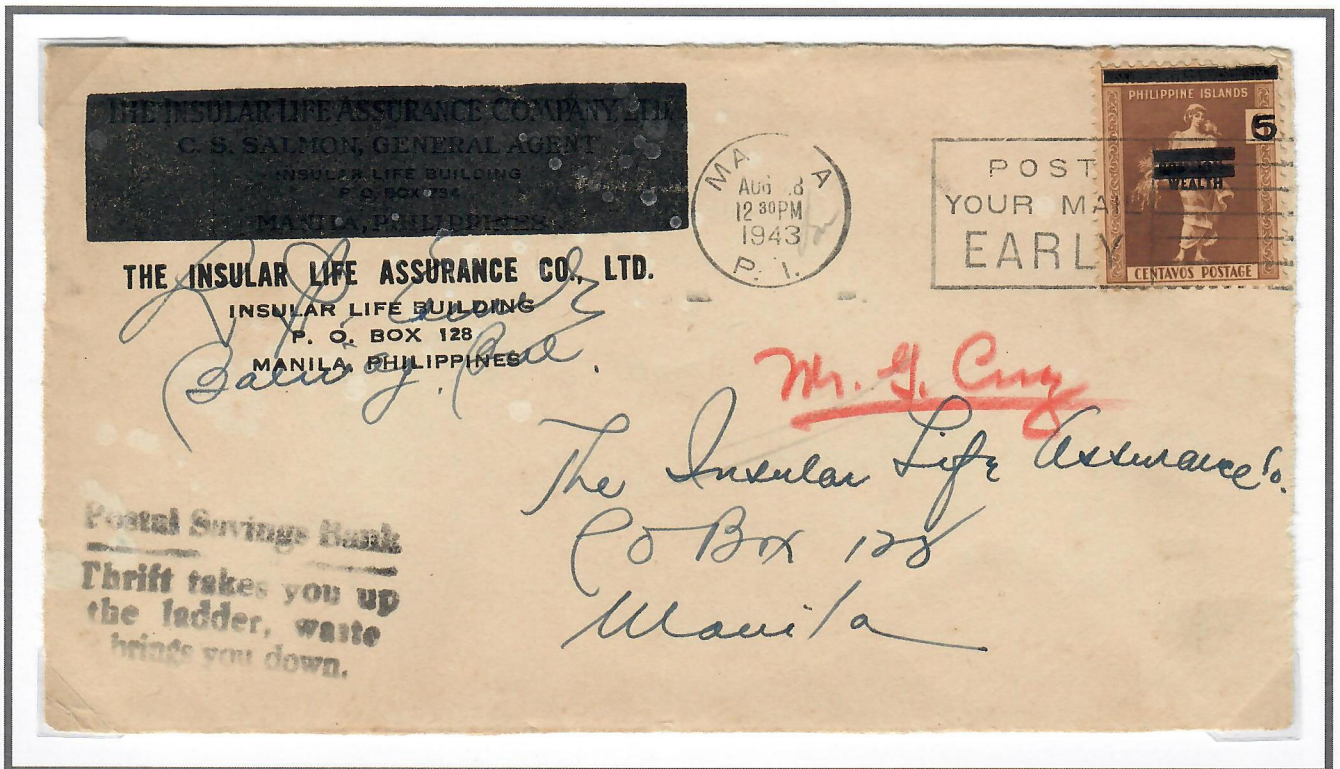 THE INSULAR LIFE ASSURANCE COMPANY, LTD.
C. S. SALMON, GENERAL AGENT
INSULAR LIFE BUILDING
P. O. BOX 734
MANILA, PHILIPPINES
THE INSULAR LIFE ASSURANCE CO., LTD.
INSULAR LIFE BUILDING
P. O. BOX 128
MANILA, PHILIPPINES
MA A
AUG 8
12 30 PM
1943
P. I.
POST
YOUR MAIL
EARLY
PHILIPPINE ISLANDS
5
WEALTH
CENTAVOS POSTAGE
Mr. G. Cruz
The Insular Life Assurance Co.
PO Box 128
Manila
Postal Savings Bank
Thrift takes you up
the ladder, waste
brings you down.